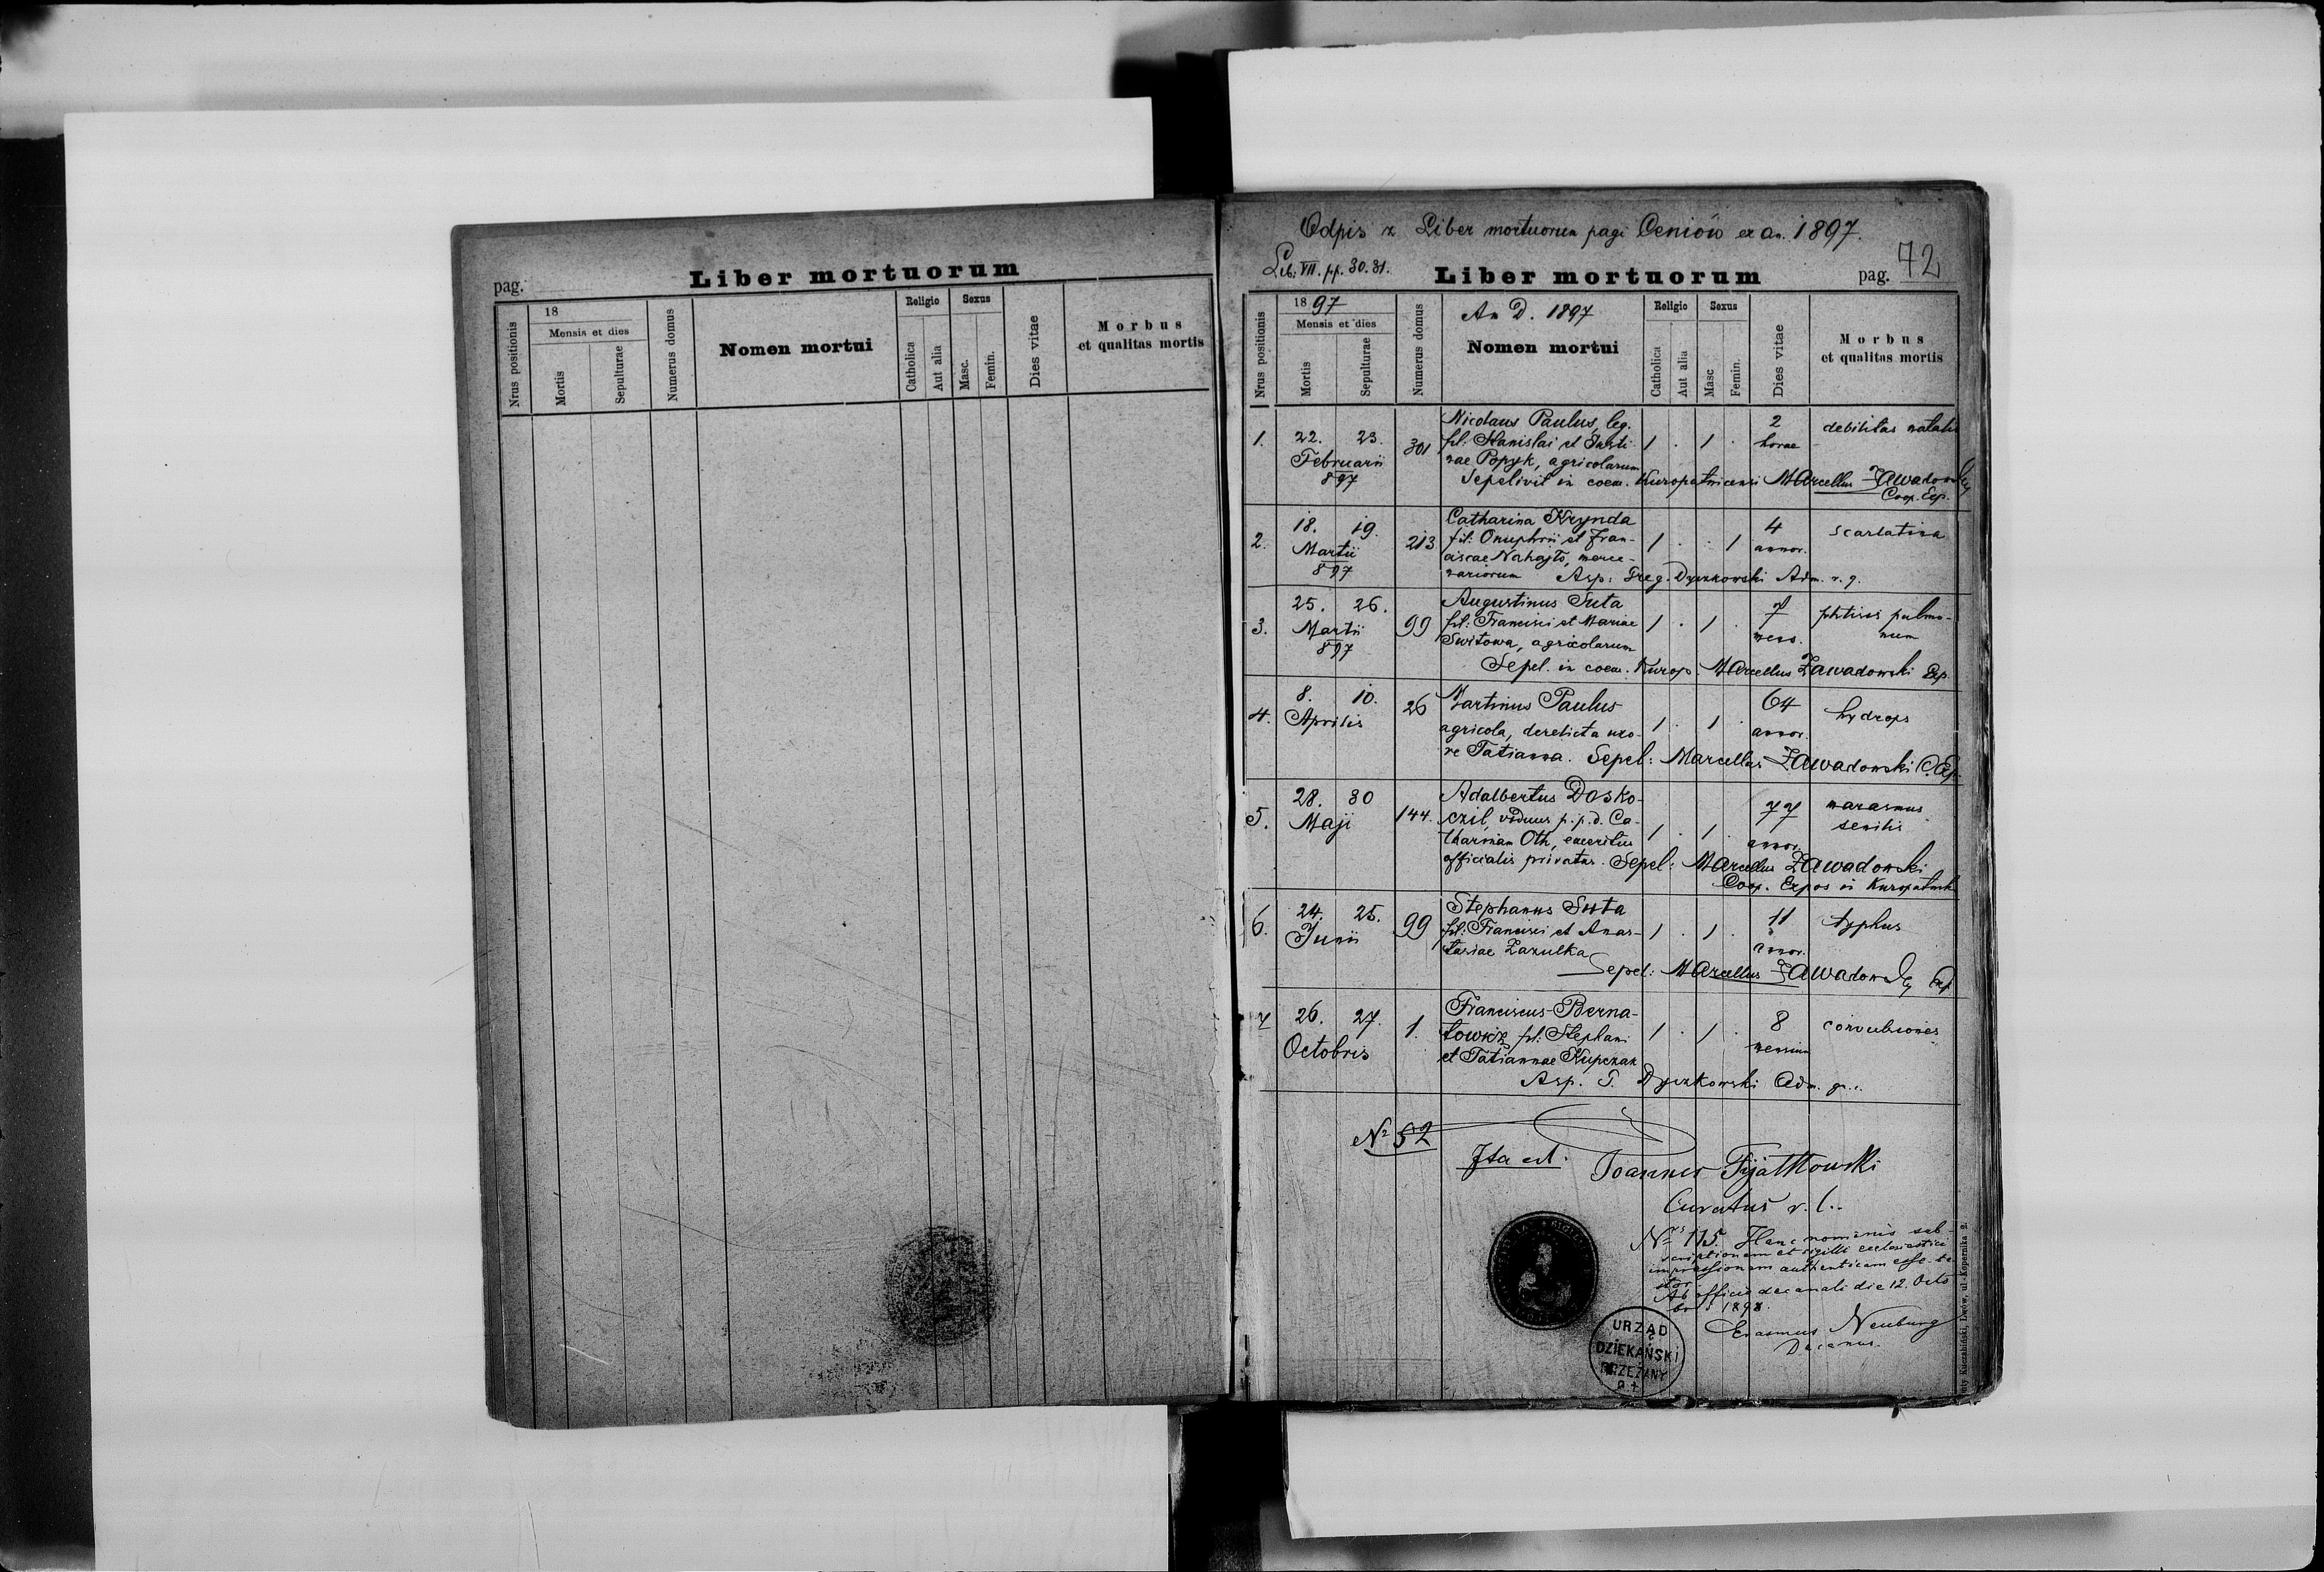 pag.
Liber mortuorum
Nrus positionis
18
Mensis et dies
Mortis
Sepulturae
Numerus domus
Nomen mortui
Religio
Catholica
Aut alia
Sexus
Masc.
Femin.
Dies vitae
Morbus
et qualitas mortis
Odpis z Liber mortuorum pagi Ceniów ex an. 1897.
Lib: VII. pp. 30. 31.
Liber mortuorum
pag. 42
Nrus positionis
18 97
Mensis et dies
Mortis
Sepulturae
Numerus domus
An D. 1897
Nomen mortui
Religio
Catholica
Aut alia
Sexus
Masc
Femin.
Dies vitae
Morbus
et qualitas mortis
1. 22. 23.
Februarii
897
301
Nicolaus Paulus, leg.
fil: Stanislai et Justi-
nae Popyk, agricolarum
1 . 1 .
2
horae
debilitas natalis
Sepelivit in coem. Kuropatnicensi Marcellus Zawadowski
Coop. Exp.
2. 18. 19.
Martii
897
213
Catharina Krynda
fil: Onuphrii et Fran-
ciscae Nahajło, merce-
nariorum
1 . . 1
4
annor.
scarlatina
Asp: Greg. Dyczkowski Adm. r. g.
3. 25. 26.
Martii
897
99
Augustinus Suta
fil: Francisci et Mariae
Switowa, agricolarum
1 . 1 .
7
mens.
phtisis pulmo-
num
Sepel. in coem. Kurop. Marcellus Zawadowski Exp.
4. 8. 10.
Aprilis
26
Martinus Paulus
agricola, derelicta uxo-
re Tatianna.
1 . 1 .
64
annor.
hydrops
Sepel: Marcellus Zawadowski C. Exp.
5. 28. 30
Maji
144.
Adalbertus Dosko-
czil, viduus p. p. d. Ca-
tharinam Oth, emeritus
officialis privatus.
1 . 1 .
77
annor.
marasmus
senilis
Sepel: Marcellus Zawadowski
Coop. Expos in Kuropatnik
6. 24. 25.
Junii
99
Stephanus Suta
fil: Francisci et Anas-
tasiae Zazulka
1 . 1 .
11
annor.
typhus
Sepel: Marcellus Zawadowski Exp.
7 26. 27.
Octobris
1.
Franciscus Berna-
towicz fil: Stephani
et Tatiannae Kupczak
1 . 1 .
8
mensium
convulsiones
Asp. G. Dyczkowski Adm. gr.
No 52
Ita est. Joannes Fijałkowski
Curatus r. l.
Nrs 115. Hanc nominis sub-
scriptionem et sigilli ecclesiastici
impressionem authenticam esse te-
stor.
Ab officio decanali die 12. Octo
bris 1898.
Erasmus Neuburg
Decanus.
URZĄD
DZIEKAŃSKI
BRZEŻANY
Kuczabiński, Lwów, ul. Kopernika 2.